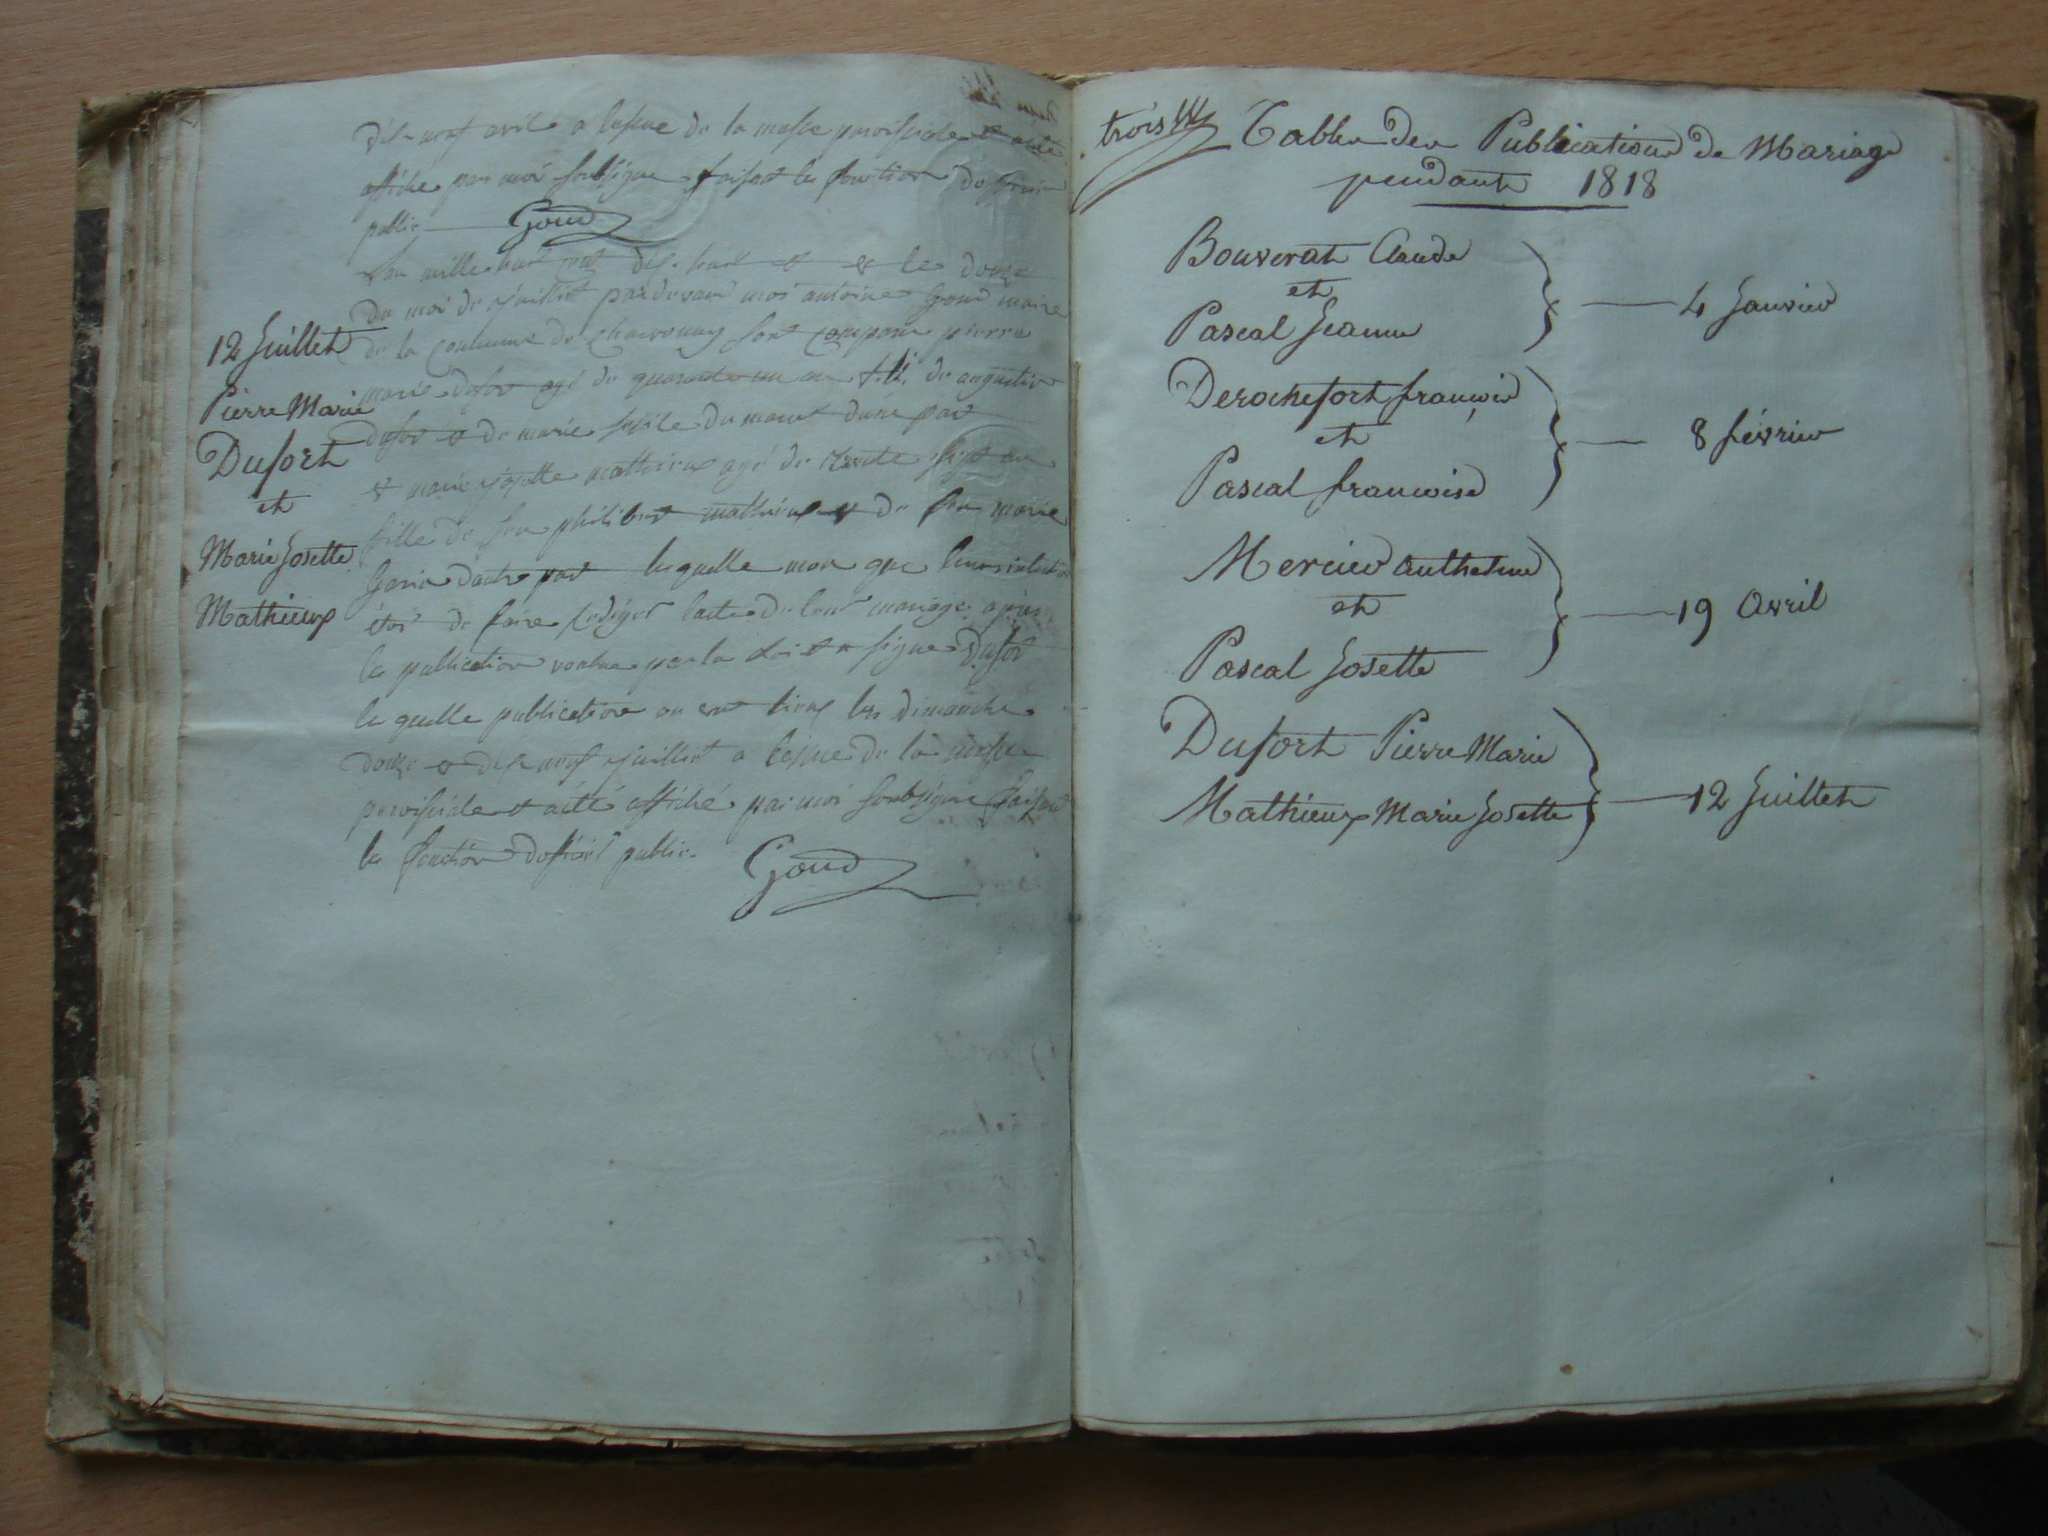 dix neuf avril a lissue de la messe paroissiale et a été
affiché par moi soubsigné faisant les fonction d'officier
public Goud
L'an mille huit cent dix huit et le douze
du moi de juillet pardevant moi antoine Goud maire
de la commune de sont comparu pierre
marie dufort agé de quarante un an fils de augustin
dufort et de marie du manet d'une part
et marie josette mathieux agé de trente sept an
fille de feu philibert mathieux et de feu marie
d'autre part lesquelle mon que
étoi de faire rediger l'acte de leur mariage après
la publication voulue par la loi et a signé Dufort
la quelle publication on eut lieux les dimanche
douze et dix neuf juillet a lissue de la messe
paroissiale et a été affiché par moi soubsigné faisant
les fonction d'officier public.
Goud
12 Juillet
Pierre Marie
Dufort
et
Marie Josette
Mathieux
trois
Table des Publications de Mariage
pendant 1818
Bouverat Claude
et
Pascal Jeanne
4 Janvier
Derochefort françois
et
Pascal françoise
8 février
Mercier Anthelme
et
Pascal Josette
19 Avril
Dufort Pierre Marie
Mathieux Marie Josette
12 Juillet